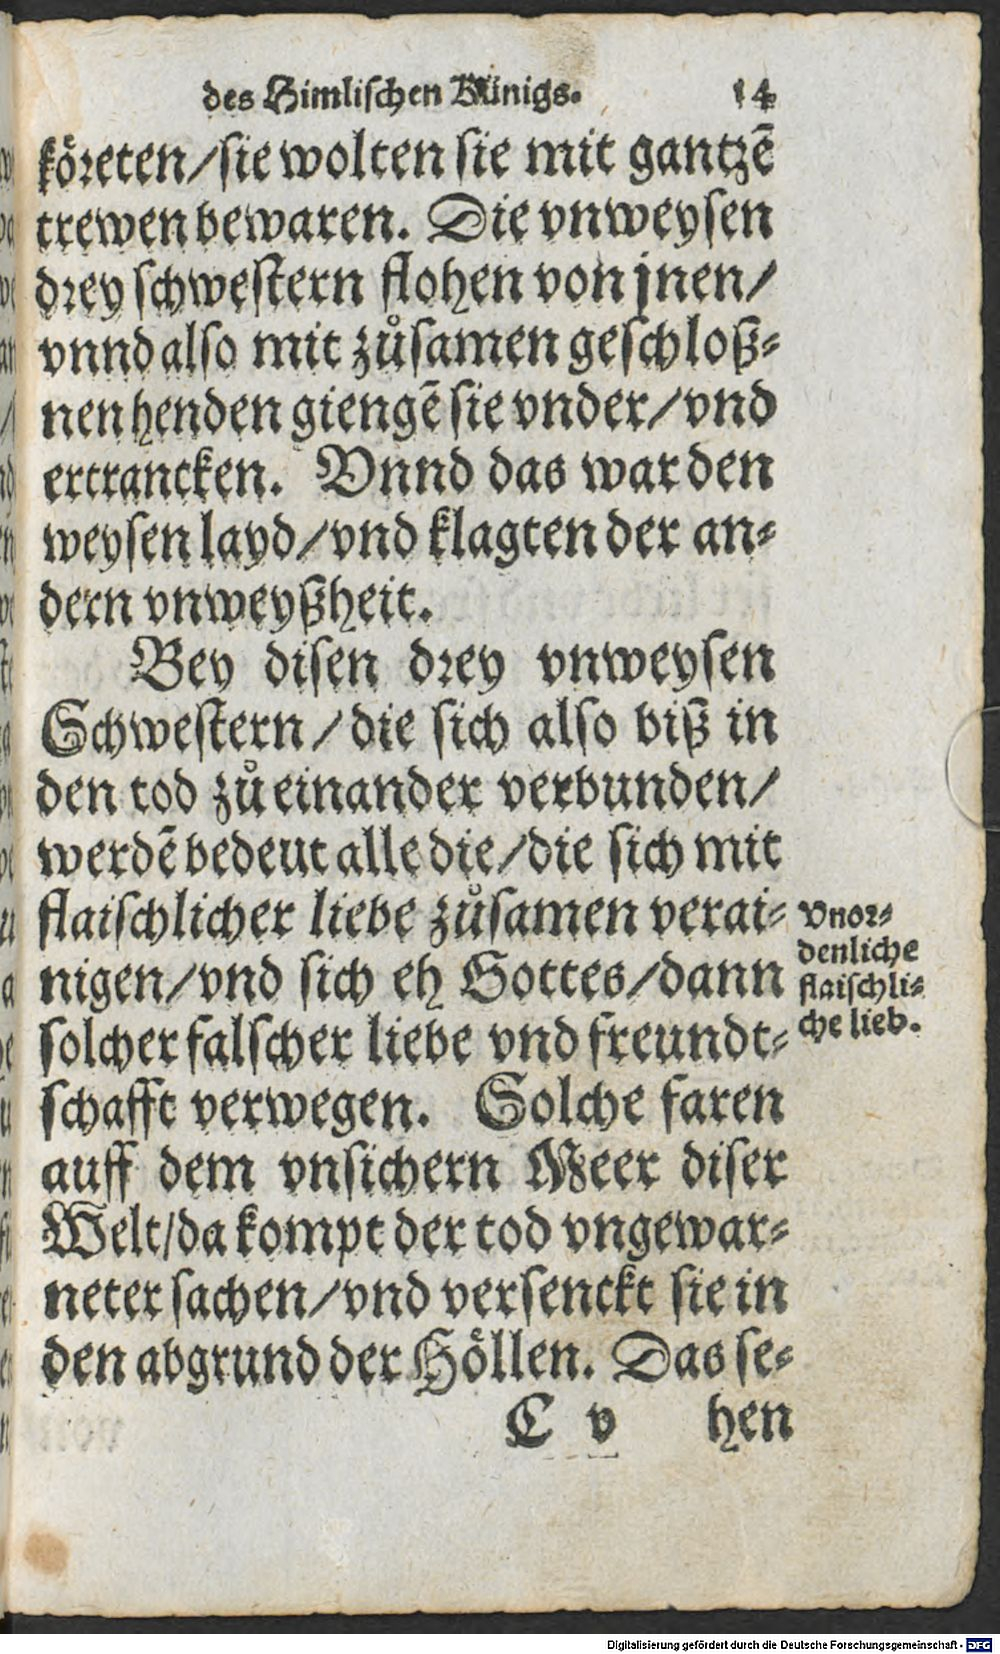 des Himlischen Künigs. 14
köreten/sie wolten sie mit gantzẽ
trewen bewaren. Die vnweysen
drey schwestern flohen von jnen/
vnnd also mit zůsamen geschloß-
nen henden giengẽ sie vnder/vnd
ertrancken. Vnnd das war den
weysen layd/vnd klagten der an-
dern vnweyßheit.
Bey disen drey vnweysen
Schwestern/die sich also biß in
den tod zů einander verbunden/
werdẽ bedeut alle die/die sich mit
flaischlicher liebe zůsamen verai-
nigen/vnd sich eh Gottes/dann
solcher falscher liebe vnd freundt-
schafft verwegen. Solche faren
auff dem vnsichern Meer diser
Welt/da kompt der tod vngewar-
neter sachen/vnd versenckt sie in
den abgrund der Höllen. Das se-
C v hen
Vnor-
denliche
flaischli-
che lieb.
Digitalisierung gefördert durch die Deutsche Forschungsgemeinschaft - DFG